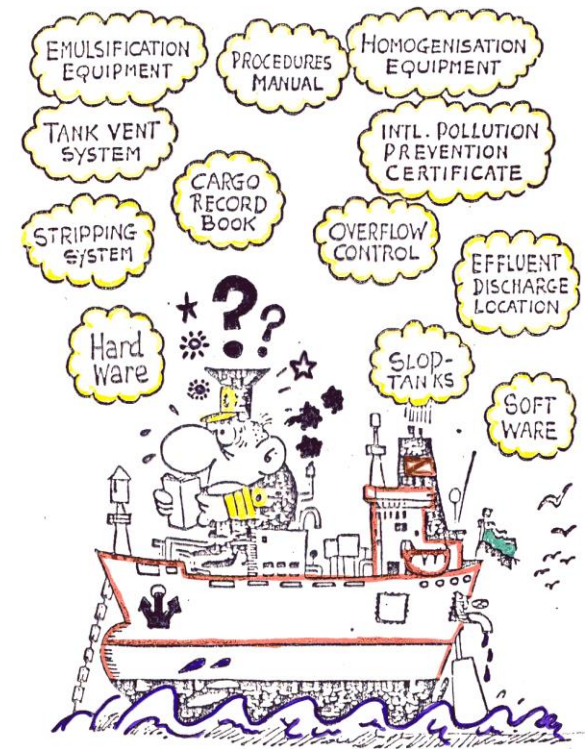 EMULSIFICATION
EQUIPMENT
PROCEDURES
MANUAL
HOMOGENISATION
EQUIPMENT
TANK VENT
SYSTEM
INTL. POLLUTION
PREVENTION
CERTIFICATE
CARGO
RECORD
BOOK
STRIPPING
SYSTEM
OVERFLOW
CONTROL
EFFLUENT
DISCHARGE
LOCATION
Hard
Ware
???
SLOP-
TANKS
SOFT
WARE